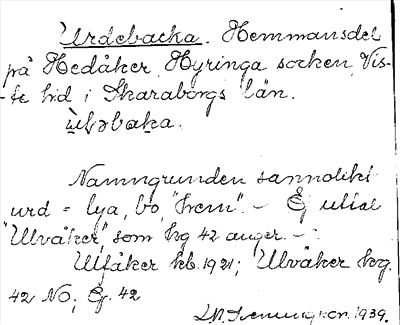 Urdebacka. Hemmansdel
på Hedåker, Hyringa socken, Vis-
-te hd i Skaraborgs län.
Namngrunden sannolikt
urd = lya, bo, "hem". - Ej uttal
"Ulvåker", som kg 42 anger. -
Ulfåker kb. 1921; Ulvåker kg.
42 NO; Eg. 42
1939.